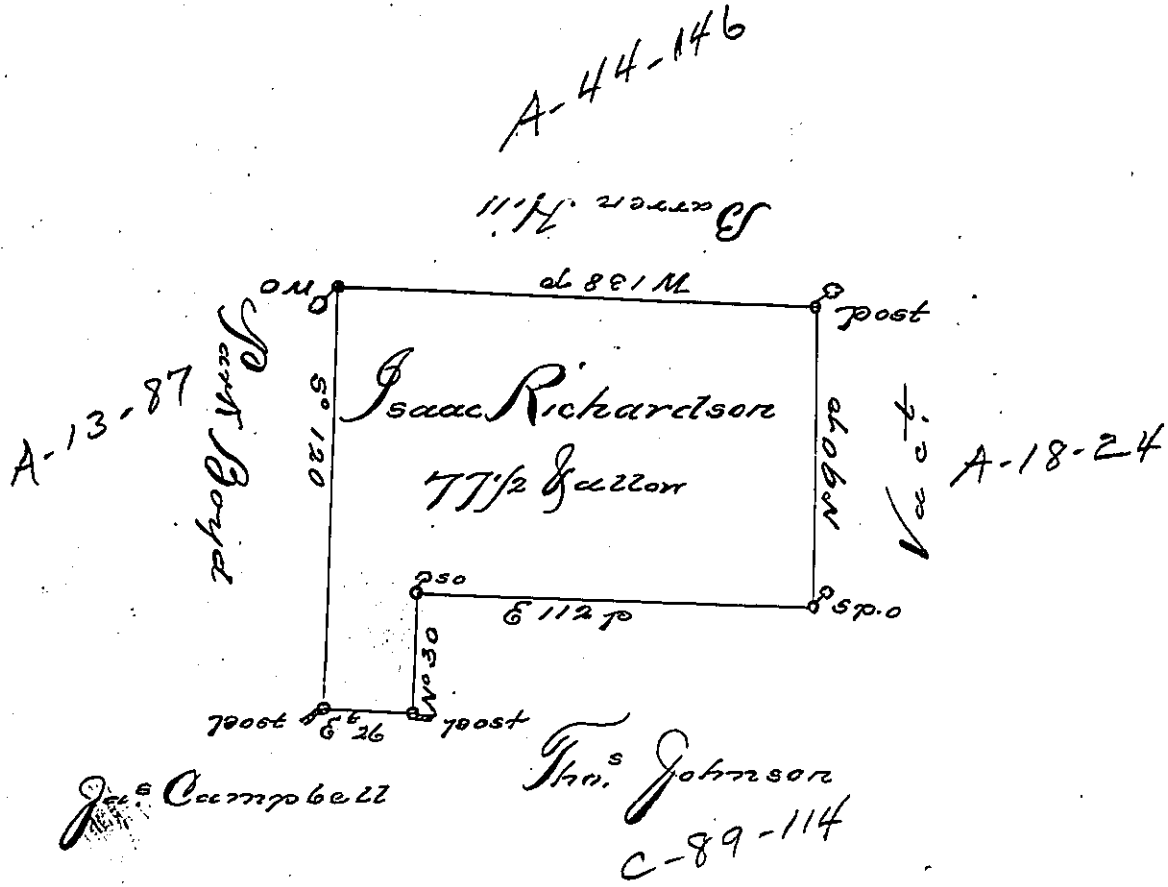 A-44-146
Barren Hill
W 138 p
WO
post
A-13-87
Patk Boyd
So 120
Isaac Richardson
77 1/2 & allow
N 90 p
Vact
A-18-24
so
E 112 p
sp.o
No 30
post
Et 26
post
Jas Campbell
Thos. Johnson
C-89-114